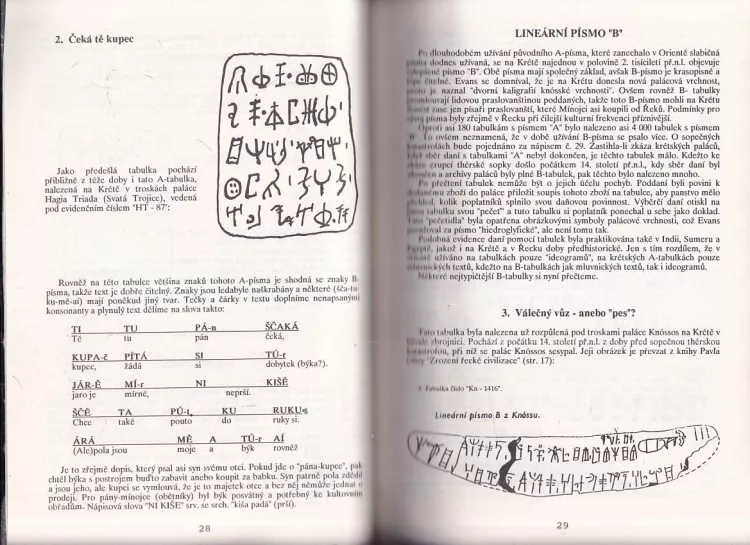 2. Čeká tě kupec
Jako předešlá tabulka pochází
přibližně z téže doby i tato A-tabulka,
nalezená na Krétě v troskách paláce
Hagia Triada (Svatá Trojice), vedená
pod evidenčním číslem "HT - 87":
Rovněž na této tabulce většina znaků tohoto A-písma je shodná se znaky B-
písma, takže text je dobře čitelný. Znaky jsou ledabyle naškrabány a některé (šča-tu-
ku-mě-aí) mají poněkud jiný tvar. Tečky a čárky v textu doplníme nenapsanými
konsonanty a plynulý text dělíme na slova takto:
TI TU PÁ-n ŠČAKÁ
Tě tu pán čeká,
KUPA-č PÍTÁ SI TÚ-r
kupec, žádá si dobytek (býka?).
JÁR-Ě MÍ-r NI KIŠĚ
jaro je mírné, neprší.
ŠČĚ TA PÚ-t, KU RUKU-s
Chce také pouto do ruky si.
ÁRÁ MĚ A TÚ-r AÍ
(Ale)pola jsou moje a býk rovněž
Je to zřejmě dopis, který psal asi syn svému otci. Pokud jde o "pána-kupce", pak
chtěl býka s postrojem buďto zabavit anebo koupit za babku. Syn patrně pola zdědil
a jsou jeho, ale kupci se vymlouvá, že je to majetek otce a bez něj němůže jednat o
prodeji. Pro pány-mínojce (obětníky) byl býk posvátný a potřebný ke kultovním
obřadům. Nápisová slova "NI KIŠE" srv. se srch. "kiša padá" (prší).
28
LINEÁRNÍ PÍSMO "B"
Po dlouhodobém užívání původního A-písma, které zanechalo v Orientě slabičná
dodnes užívaná, se na Krétě najednou v polovině 2. tisíciletí př.n.l. objevuje
písmo "B". Obě písma mají společný základ, avšak B-písmo je krasopisné a
čitelné. Evans se domníval, že je na Krétu donesla nová palácová vrchnost,
proto je naznal "dvorní kaligrafií knósské vrchnosti". Ovšem rovněž B-tabulky
lidovou praslovanštinou poddaných, takže toto B-písmo mohli na Krétu
zase jen písaři praslovanští, které Mínojci asi koupili od Řeků. Podmínky pro
písma byly zřejmě v Řecku při čilejší kulturní frekvenci příznivější.
Oproti asi 180 tabulkám s písmem "A" bylo nalezeno asi 4 000 tabulek s písmem
To ovšem neznamená, že v době užívání B-písma se psalo více. O sopečných
bude pojednáno za nápisem č. 29. Zastihla-li zkáza krétských paláců,
sběr daní s tabulkami "A" nebyl dokončen, je těchto tabulek málo. Kdežto ke
erupci thérské sopky došlo počátkem 14. století př.n.l, kdy sběr daní byl
a archívy paláců byly plné B-tabulek, pak těchto bylo nalezeno mnoho.
Po přečtení tabulek nemůže být o jejich účelu pochyb. Poddaní byli povini k
zboží do paláce přiložit soupis tohoto zboží na tabulce, aby panstvo mělo
kolik poplatníků splnilo svou daňovou povinnost. Výběrčí daní otiskl na
tabulku svou "pečeť" a tuto tabulku si poplatník ponechal u sebe jako doklad.
"pečetidla" byla opatřena obrázkovými symboly palácové vrchnosti, což Evans
za písmo "hiedroglyfické", ale není tomu tak.
Podobná evidence daní pomocí tabulek byla praktikována také v Indii, Sumeru a
jakož i na Krétě a v Řecku doby předhistorické. Jen s tím rozdílem, že v
užíváno na tabulkách pouze "ideogramů", na krétských A-tabulkách pouze
textů, kdežto na B-tabulkách jak mluvnických textů, tak i ideogramů.
Některé nejtypičtější B-tabulky si nyní přečteme.
3. Válečný vůz - anebo "pes"?
Tato tabulka byla nalezena už rozpůlená pod troskami paláce Knóssos na Krétě v
zbrojnici. Pochází z počátku 14. století př.n.l. z doby před sopečnou thérskou
při níž se palác Knóssos sesypal. Její obrázek je převzat z knihy Pavla
"Zrození řecké civilizace" (str. 17):
Tabulka číslo "Kn - 1416".
Lineární písmo B z Knóssu.
29